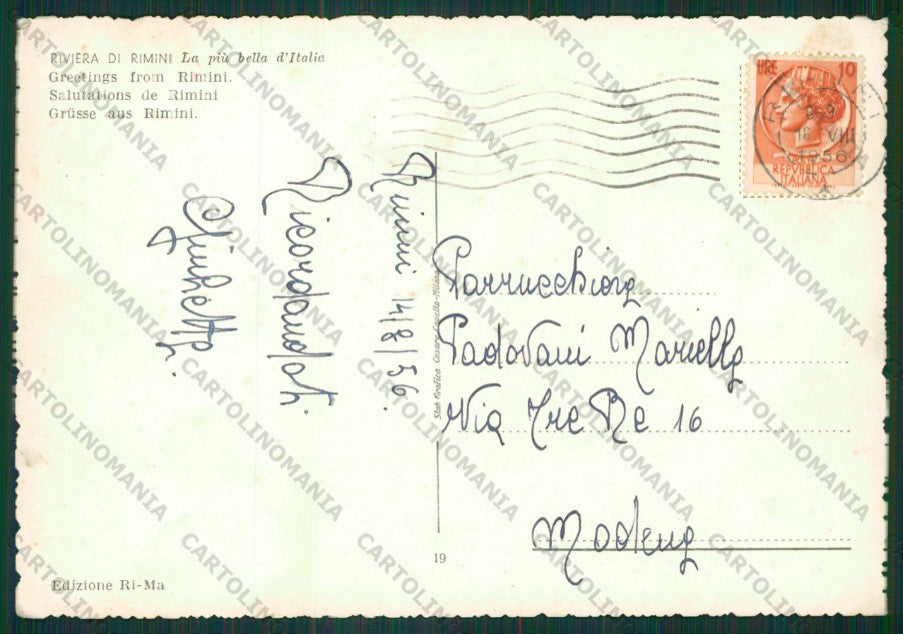 RIVIERA DI RIMINI La più bella d'Italia
Greetings from Rimini.
Salutations de Rimini
Grüsse aus Rimini.
LIRE 10
16 VIII
1956
REPVBBLICA
ITALIANA
Rimini 14/8/56.
Ricordandoti
Giulietta.
Parrucchiera
Padovani Mariella
Via Tre Re 16
Modena
19
Edizione Ri-Ma
CARTOLINOMANIA